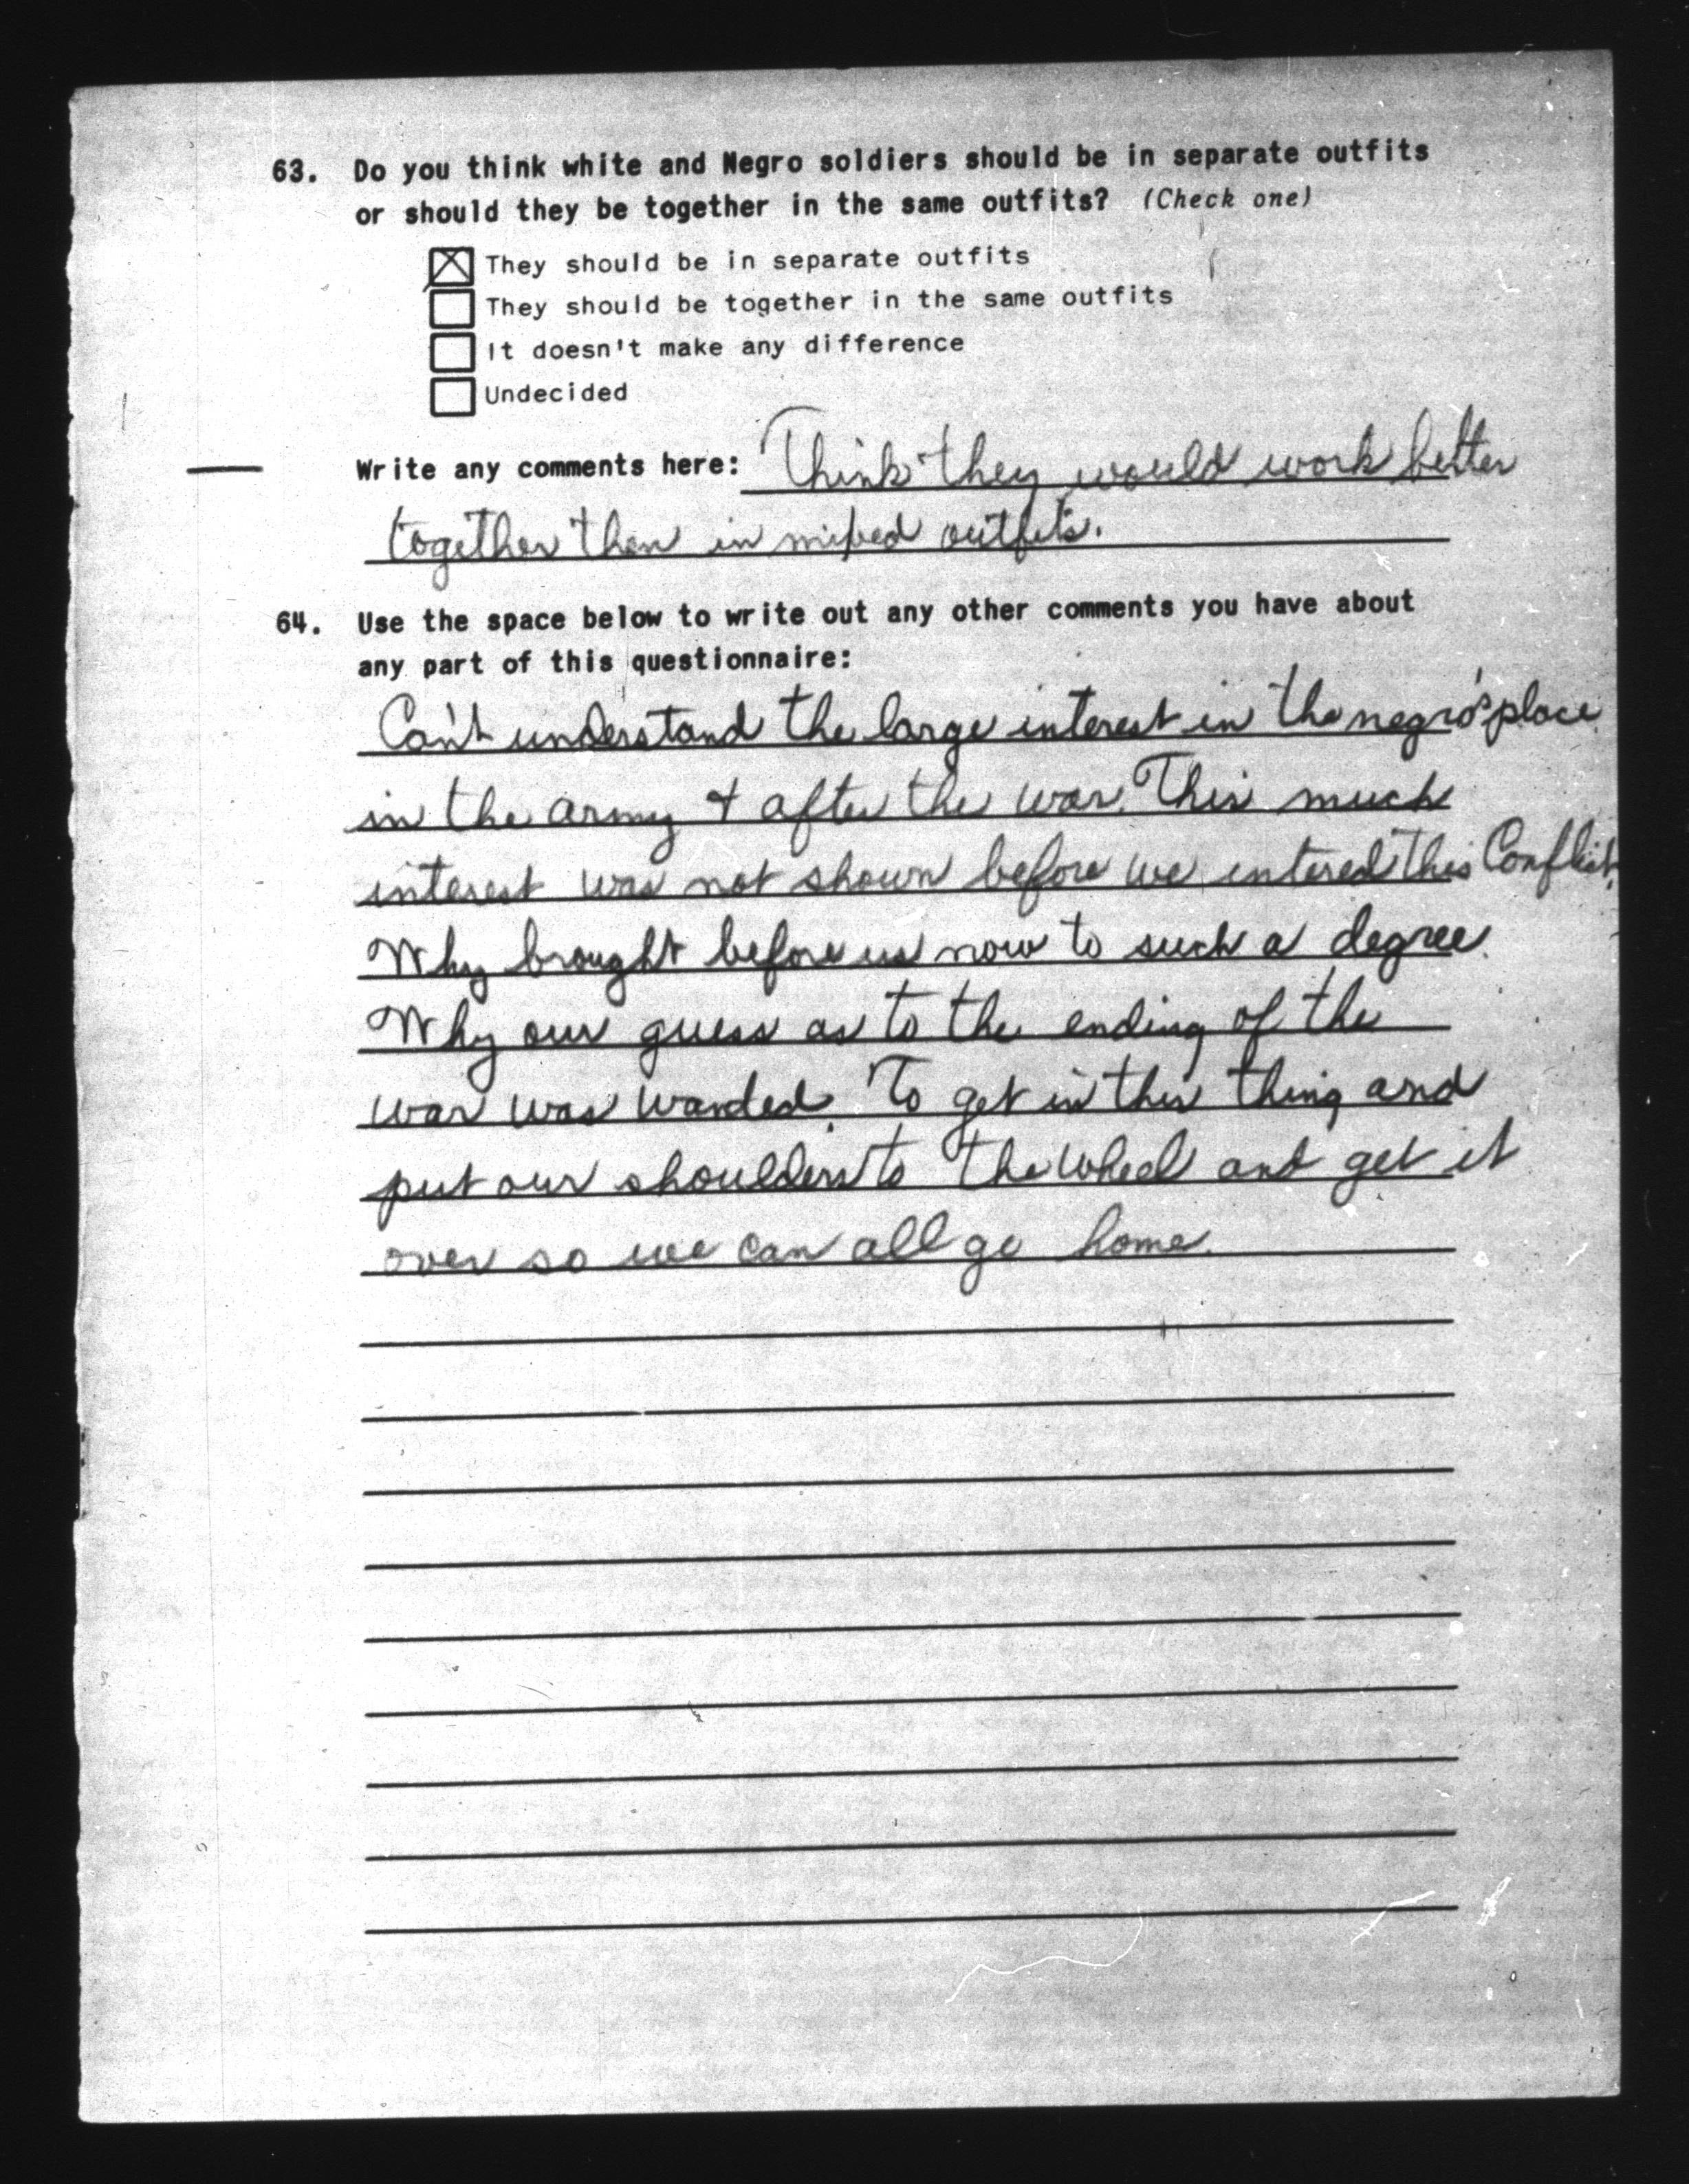 63. Do you think white and Negro soldiers should be in separate outfits
or should they be together in the same outfits? (Check one)
They should be in separate outfits
They should be together in the same outfits
It doesn't make any difference
Undecided
Write any comments here: Think they would work better
together then in mixed outfits.
64. Use the space below to write out any other comments you have about
any part of this questionnaire:
Can't understand the large interest in the negro's place
in the army & after the war. This much
interest was not shown before we entered this Conflict.
Why brought before us now to such a degree.
Why our guess as to the ending of the
war was wanted. To get in this thing and
put our shoulders to the wheel and get it
over so we can all go home.